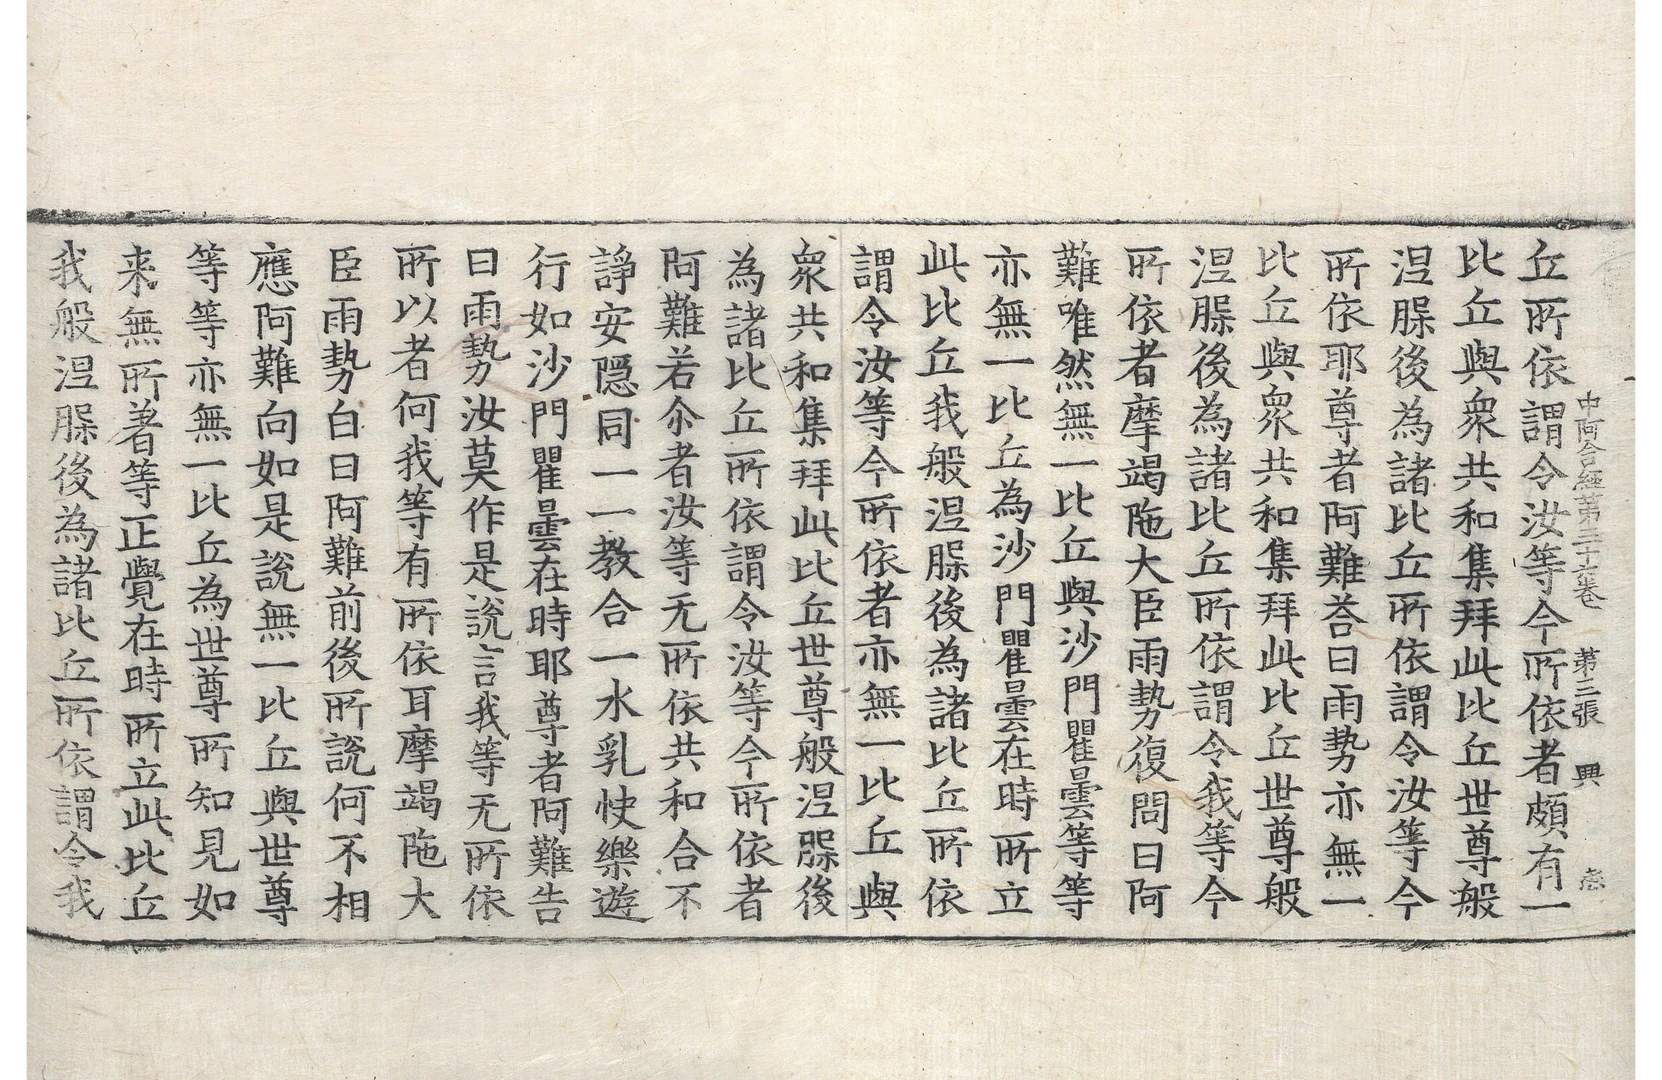 中阿含經第三十六卷 第二張 興
丘所依謂令汝等今所依者頗有一
比丘與衆共和集拜此比丘世尊般
涅槃後為諸比丘所依謂令汝等今
所依耶尊者阿難荅曰雨勢亦無一
比丘與衆共和集拜此比丘世尊般
涅槃後為諸比丘所依謂令我等今
所依者摩竭陁大臣雨勢復問曰阿
難唯然無一比丘與沙門瞿曇等等
亦無一比丘為沙門瞿曇在時所立
此比丘我般涅槃後為諸比丘所依
謂令汝等今所依者亦無一比丘與
衆共和集拜此比丘世尊般涅槃後
為諸比丘所依謂令汝等今所依者
阿難若尒者汝等无所依共和合不
諍安隱同一一教合一水乳快樂遊
行如沙門瞿曇在時耶尊者阿難告
曰雨勢汝莫作是說言我等无所依
所以者何我等有所依耳摩竭陁大
臣雨勢白曰阿難前後所說何不相
應阿難向如是說無一比丘與世尊
等等亦無一比丘為世尊所知見如
来無所著等正覺在時所立此比丘
我般涅槃後為諸比丘所依謂令我